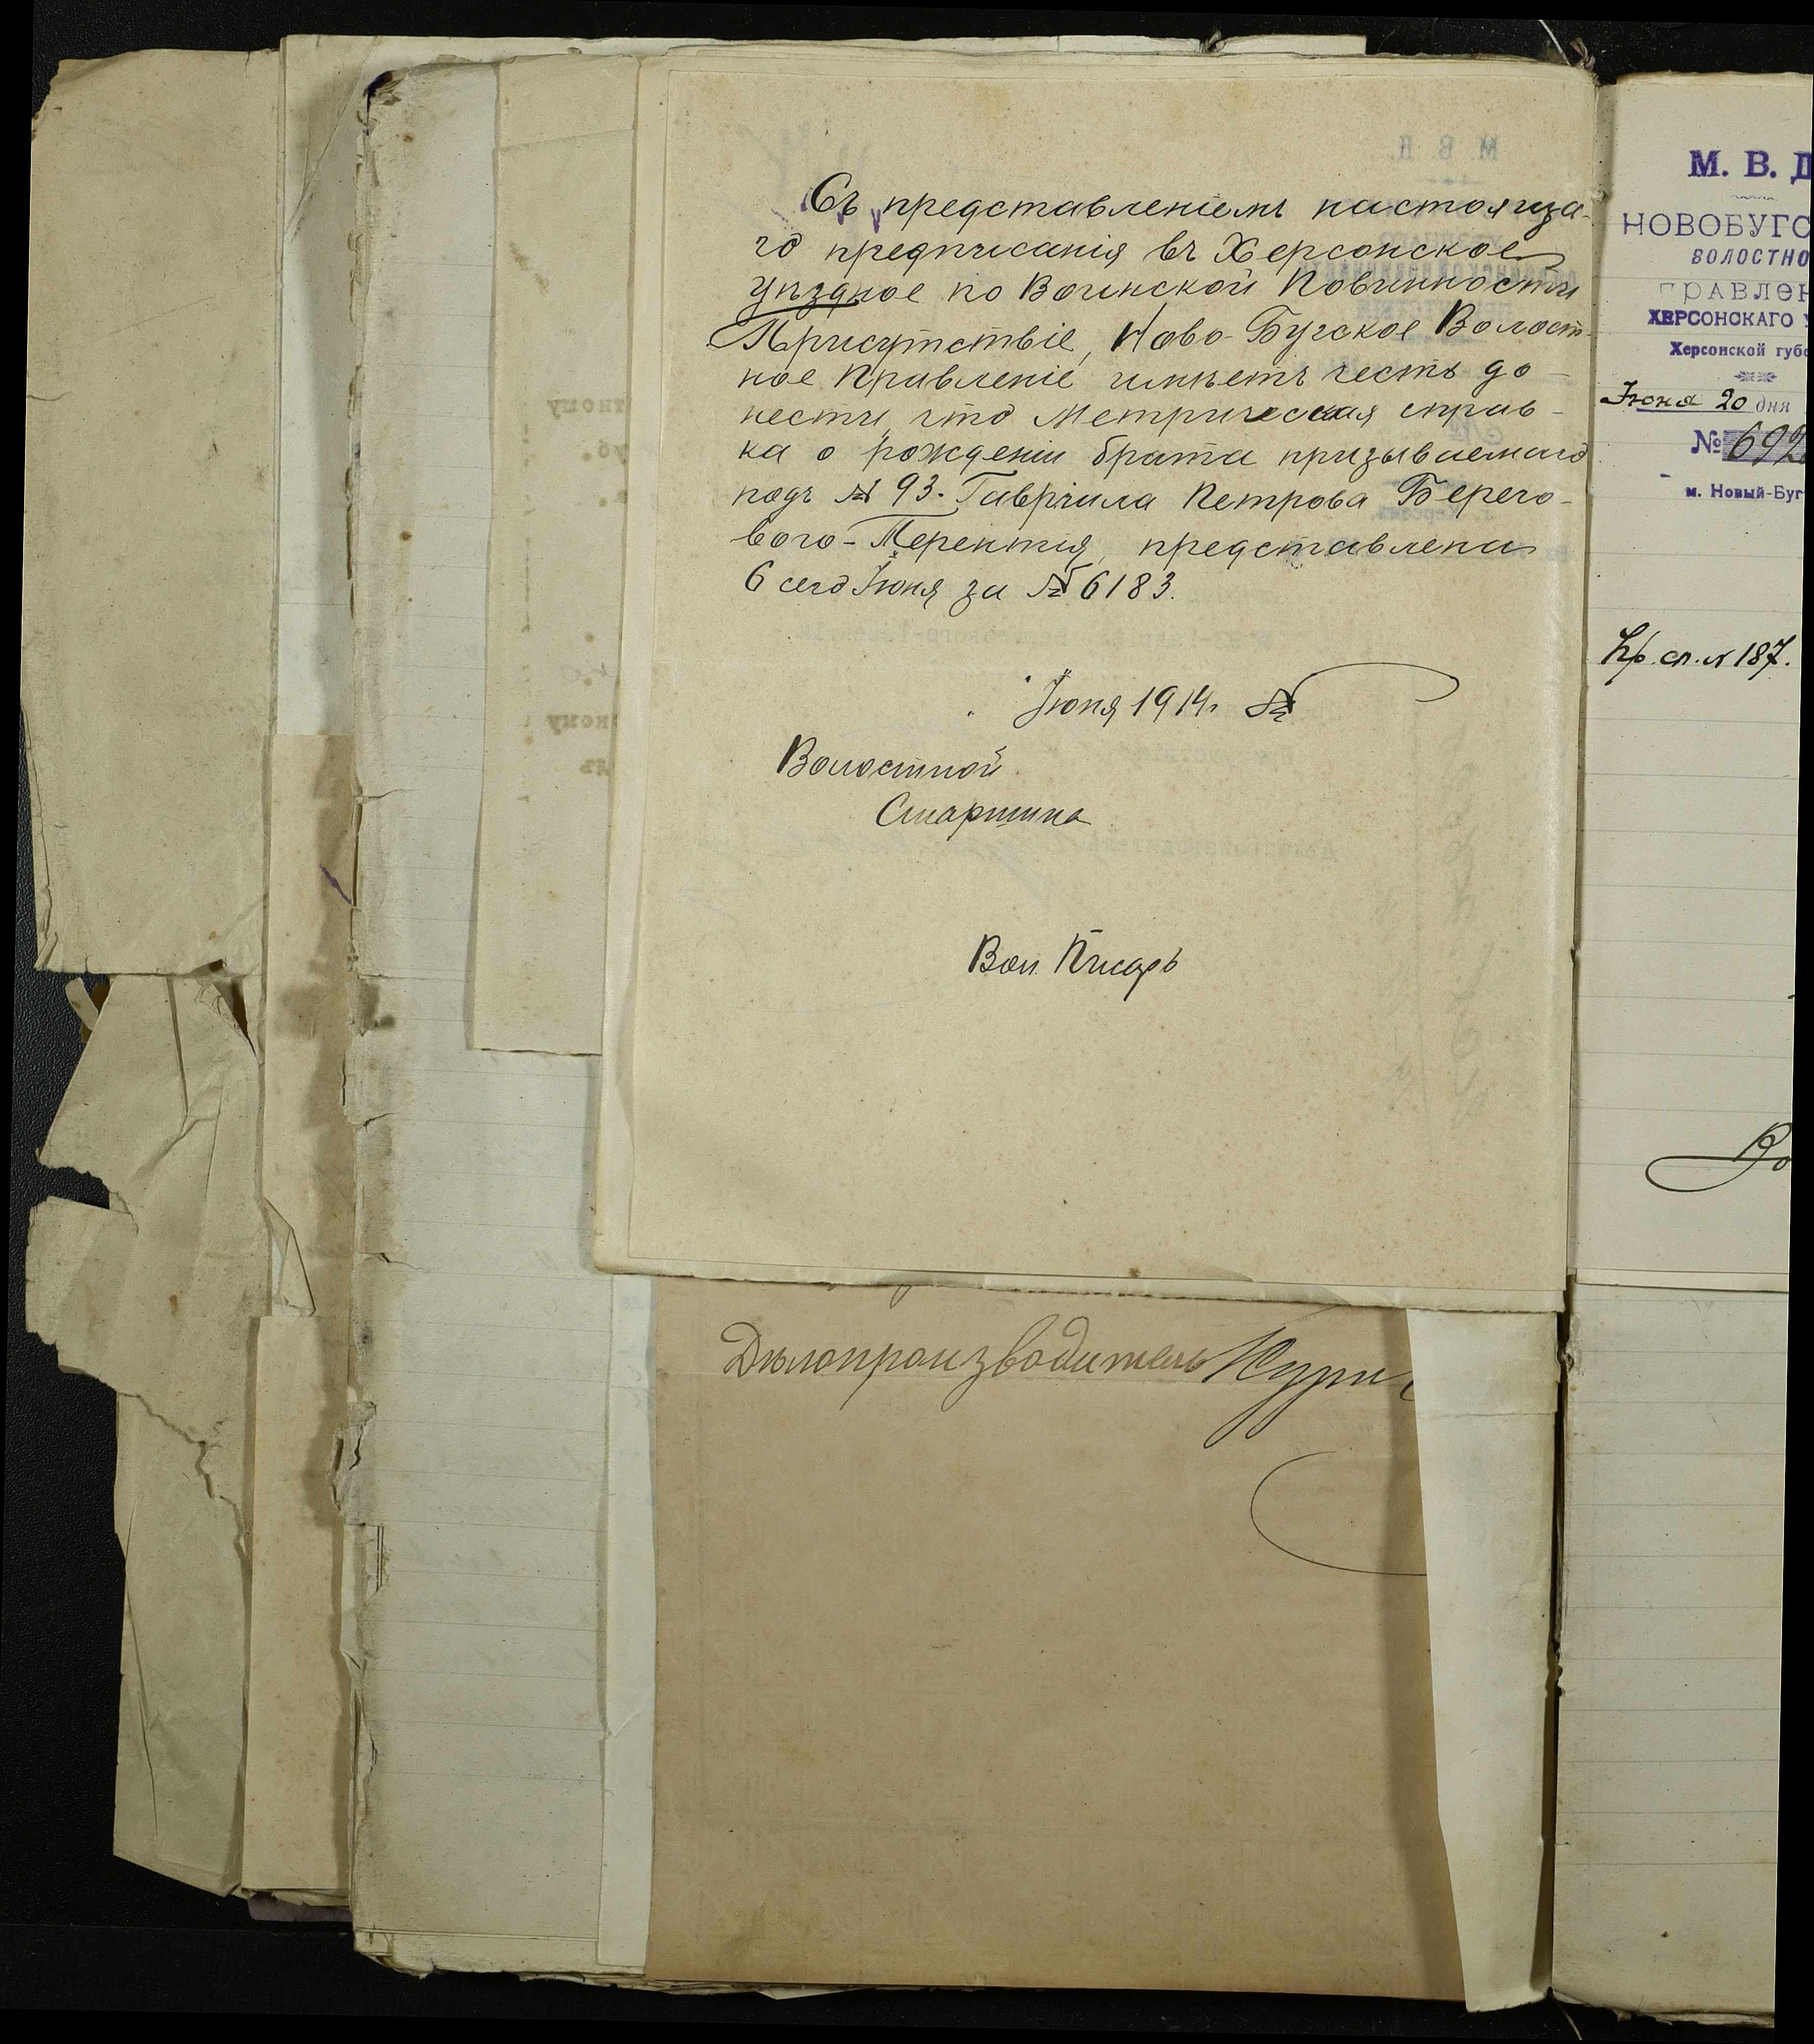 Съ представленіемъ настояща-
го предписанія въ Херсонское
уѣздное по Воинской Повинности
Присутствіе, Ново-Бугское Волост-
ное Правленіе имѣетъ честь до-
нести, что Метрическая справ-
ка о рожденіи брата призываемаго
подъ № 93. Гавріила Петрова Берего-
вого-Терентія, представлена
6 сего Іюня за № 6183.
Іюня 1914 г. №
Волостной
Старшина
Вол. Писарь
Дѣлопроизводитель
М. В. Д
НОВОБУГС
ВОЛОСТНО
ПРАВЛЕН
ХЕРСОНСКАГО У
Херсонской губе
Іюня 20 дня
№ 692
м. Новый-Буг
Пр. сп. № 187.
Во
тному
ному